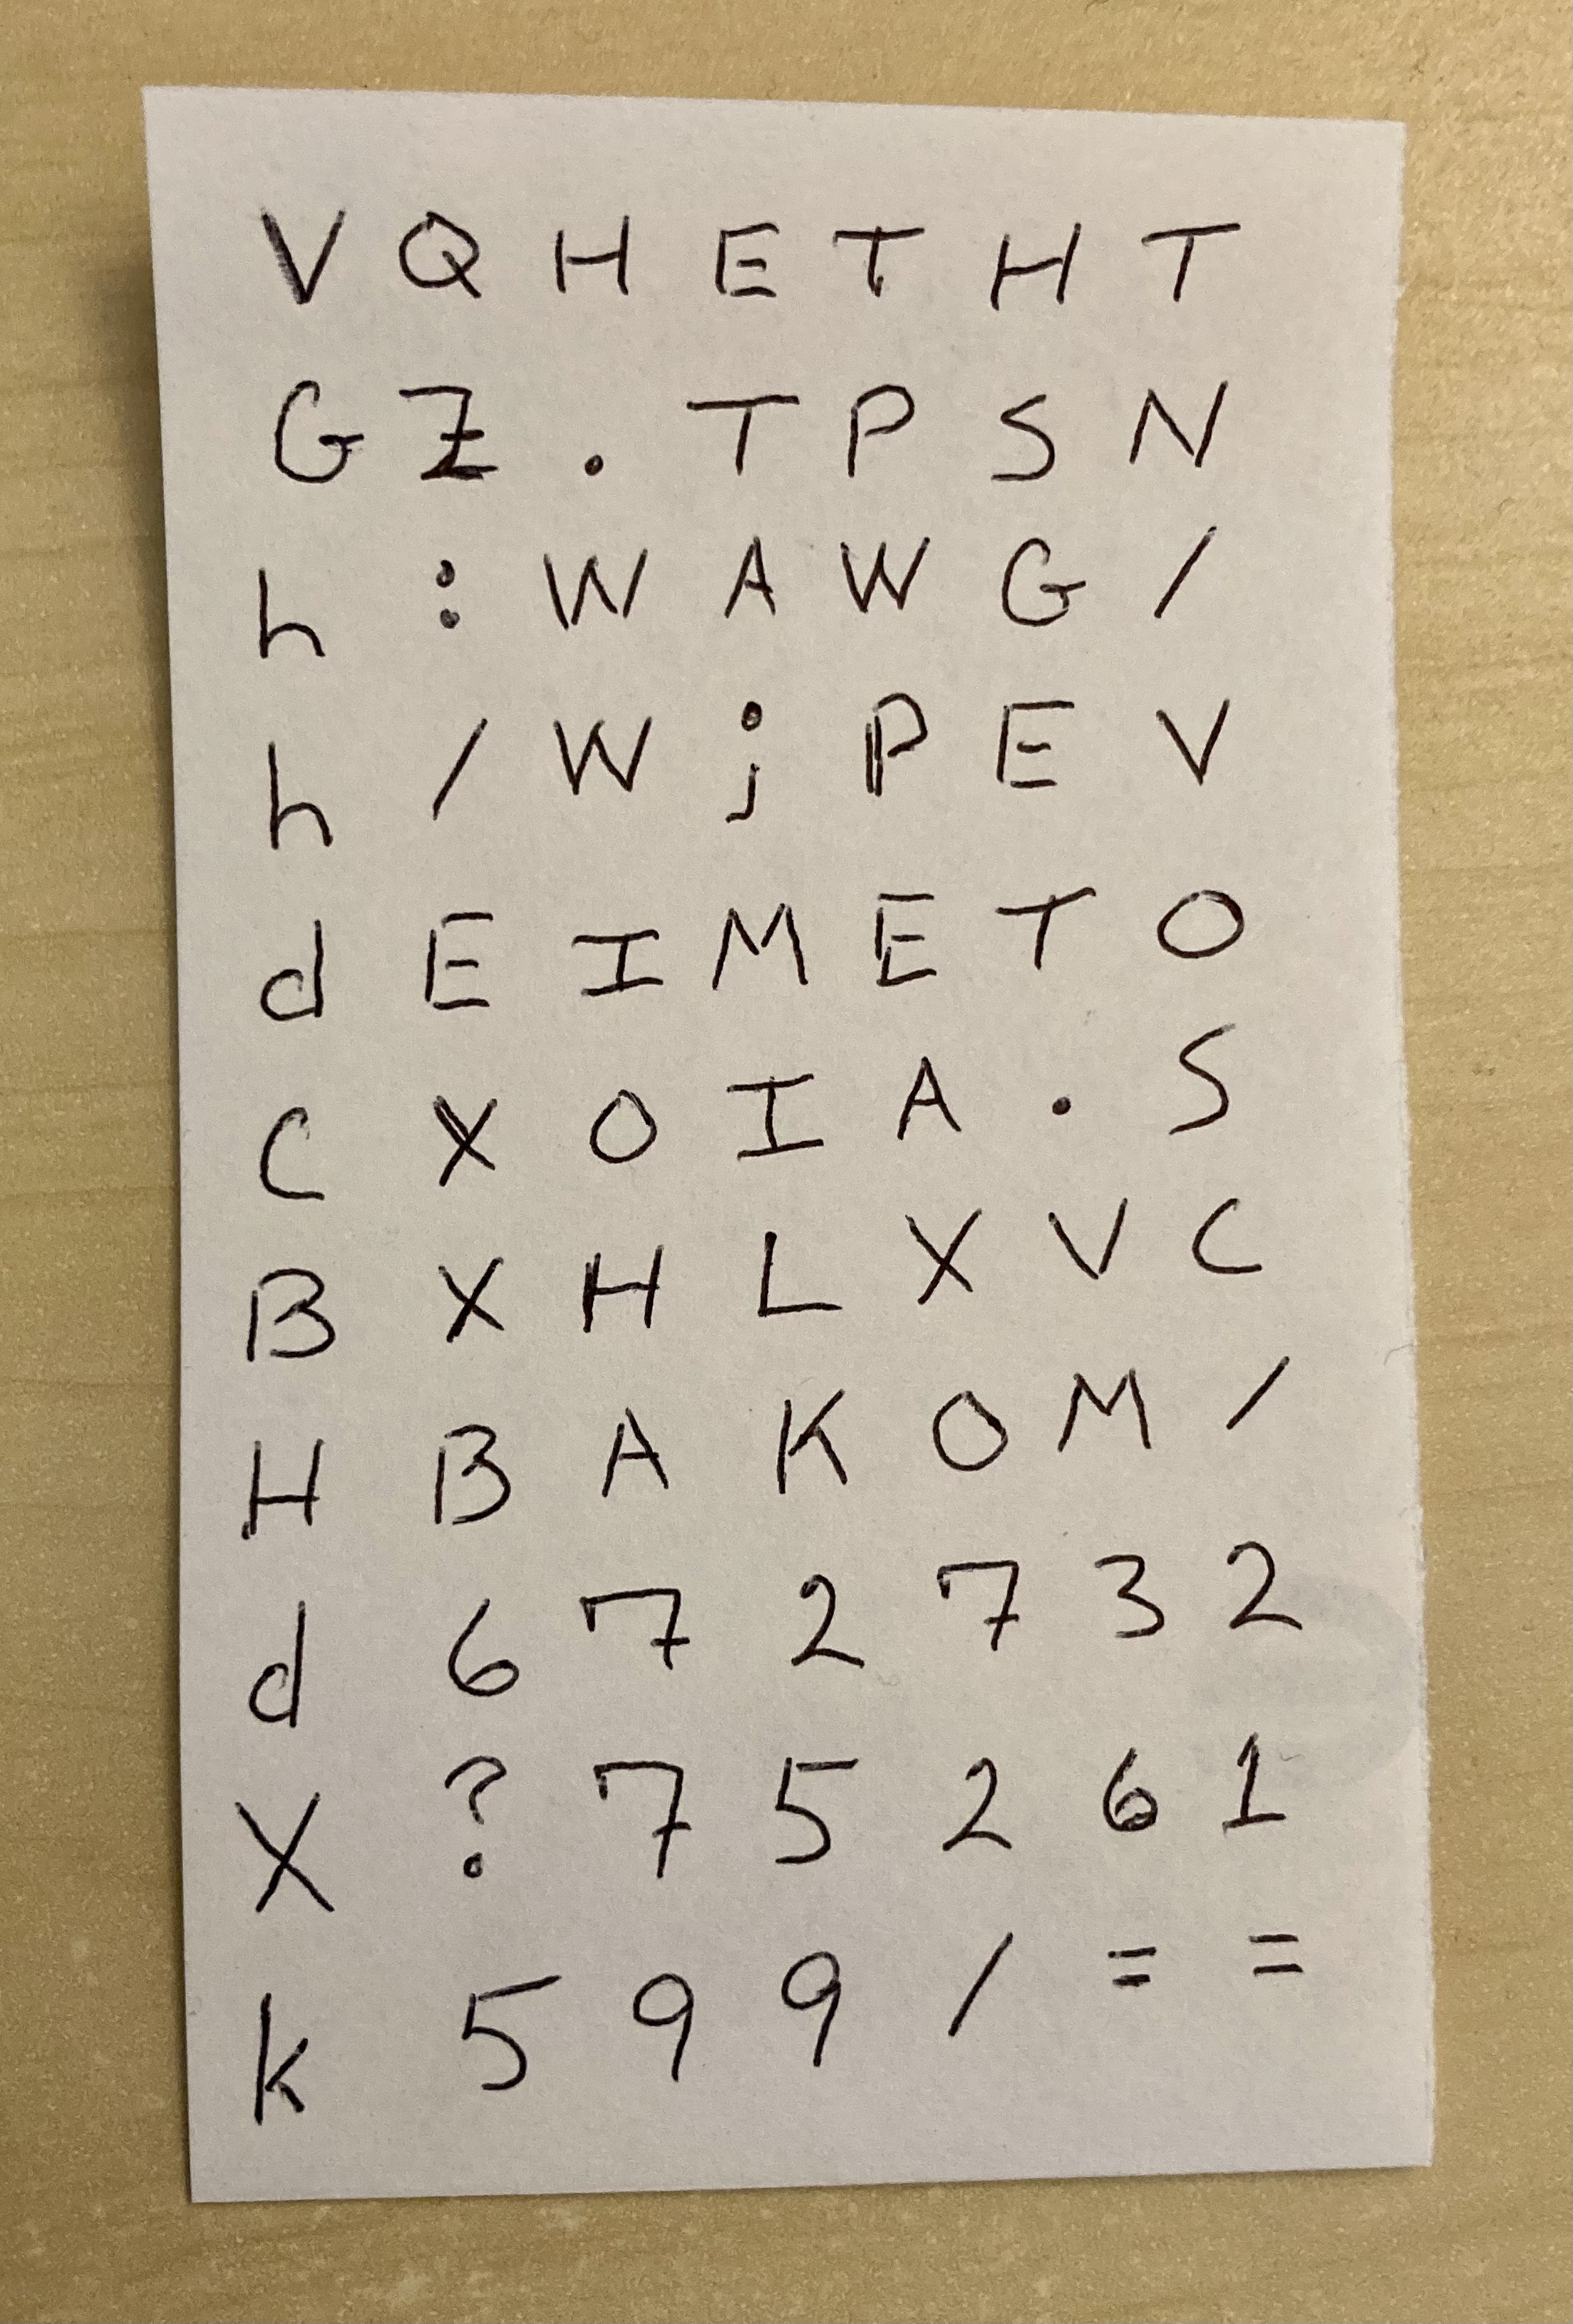 V Q H E T H T
G Z . T P S N
h : W A W G /
h / W ; P E V
d E I M E T O
C X O I A . S
B X H L X V C
H B A K O M /
d 6 7 2 7 3 2
X ? 7 5 2 6 1
k 5 9 9 / = =